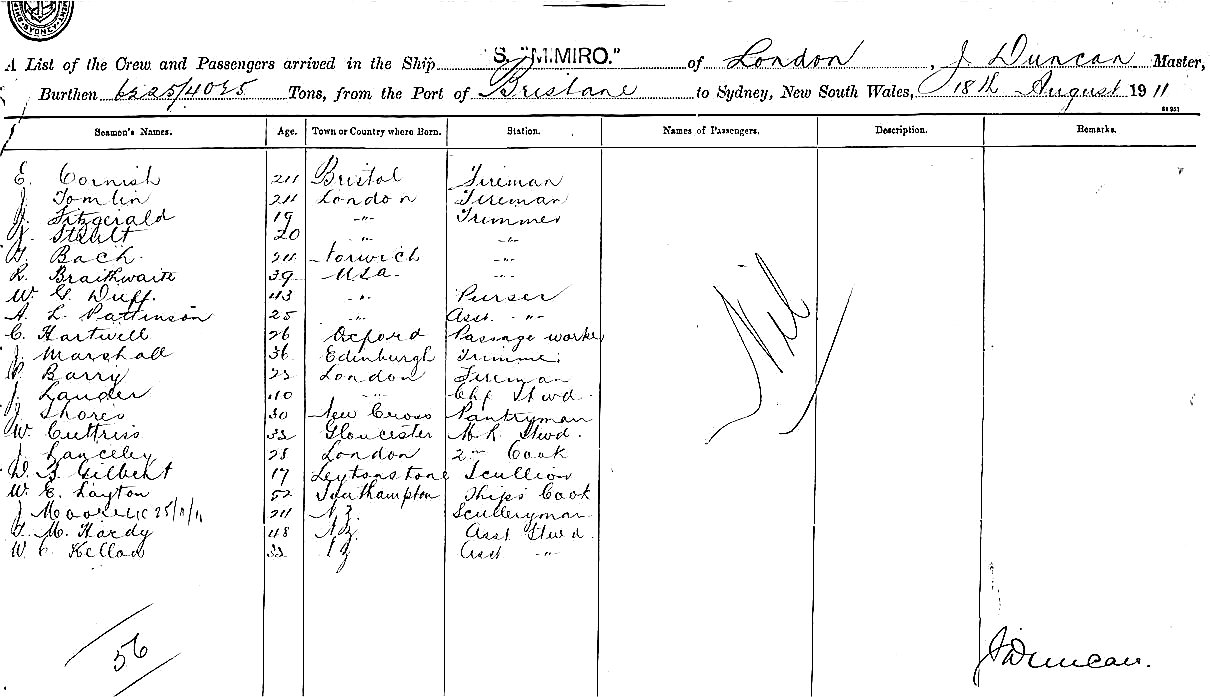 SYDNEY
S. "MIMIRO."
A List of the Crew and Passengers arrived in the Ship of London, J Duncan Master,
Burthen 6225/4035 Tons, from the Port of Brisbane to Sydney, New South Wales, 18th August 1911
Seamen's Names. Age. Town or Country where Born. Station. Names of Passengers. Description. Remarks.
E. Cornish 24 Bristol Fireman
J. Tomlin 24 London Fireman
Fitzgerald 19 -"- Trimmer
20 -"- -"-
Bach. 24 Norwich -"-
R. Braithwaite 39 USA -"-
W. G. Duff. 43 -"- Purser
A. L. Pattinson 25 -"- Asst. -"-
C. Hartwell 26 Oxford Passage worker
J. Marshall 36 Edinburgh Trimmer
P. Barry 23 London Fireman
J. Lauder 40 -"- Chf Stwd.
J. Shores 30 New Cross Pantryman
W. Cuttriss 33 Gloucester M. R. Stwd.
J. Lanceley 28 London 2nd Cook
Gilbert 17 Leytonstone Scullion
W. E. Layton 52 Southampton Ships Cook
J. Moore 24 N.Z. Sculleryman
M. Hardy 48 N.Z. Asst Stwd.
W. C. 33 NZ Asst -"-
Nil
56
J Duncan.